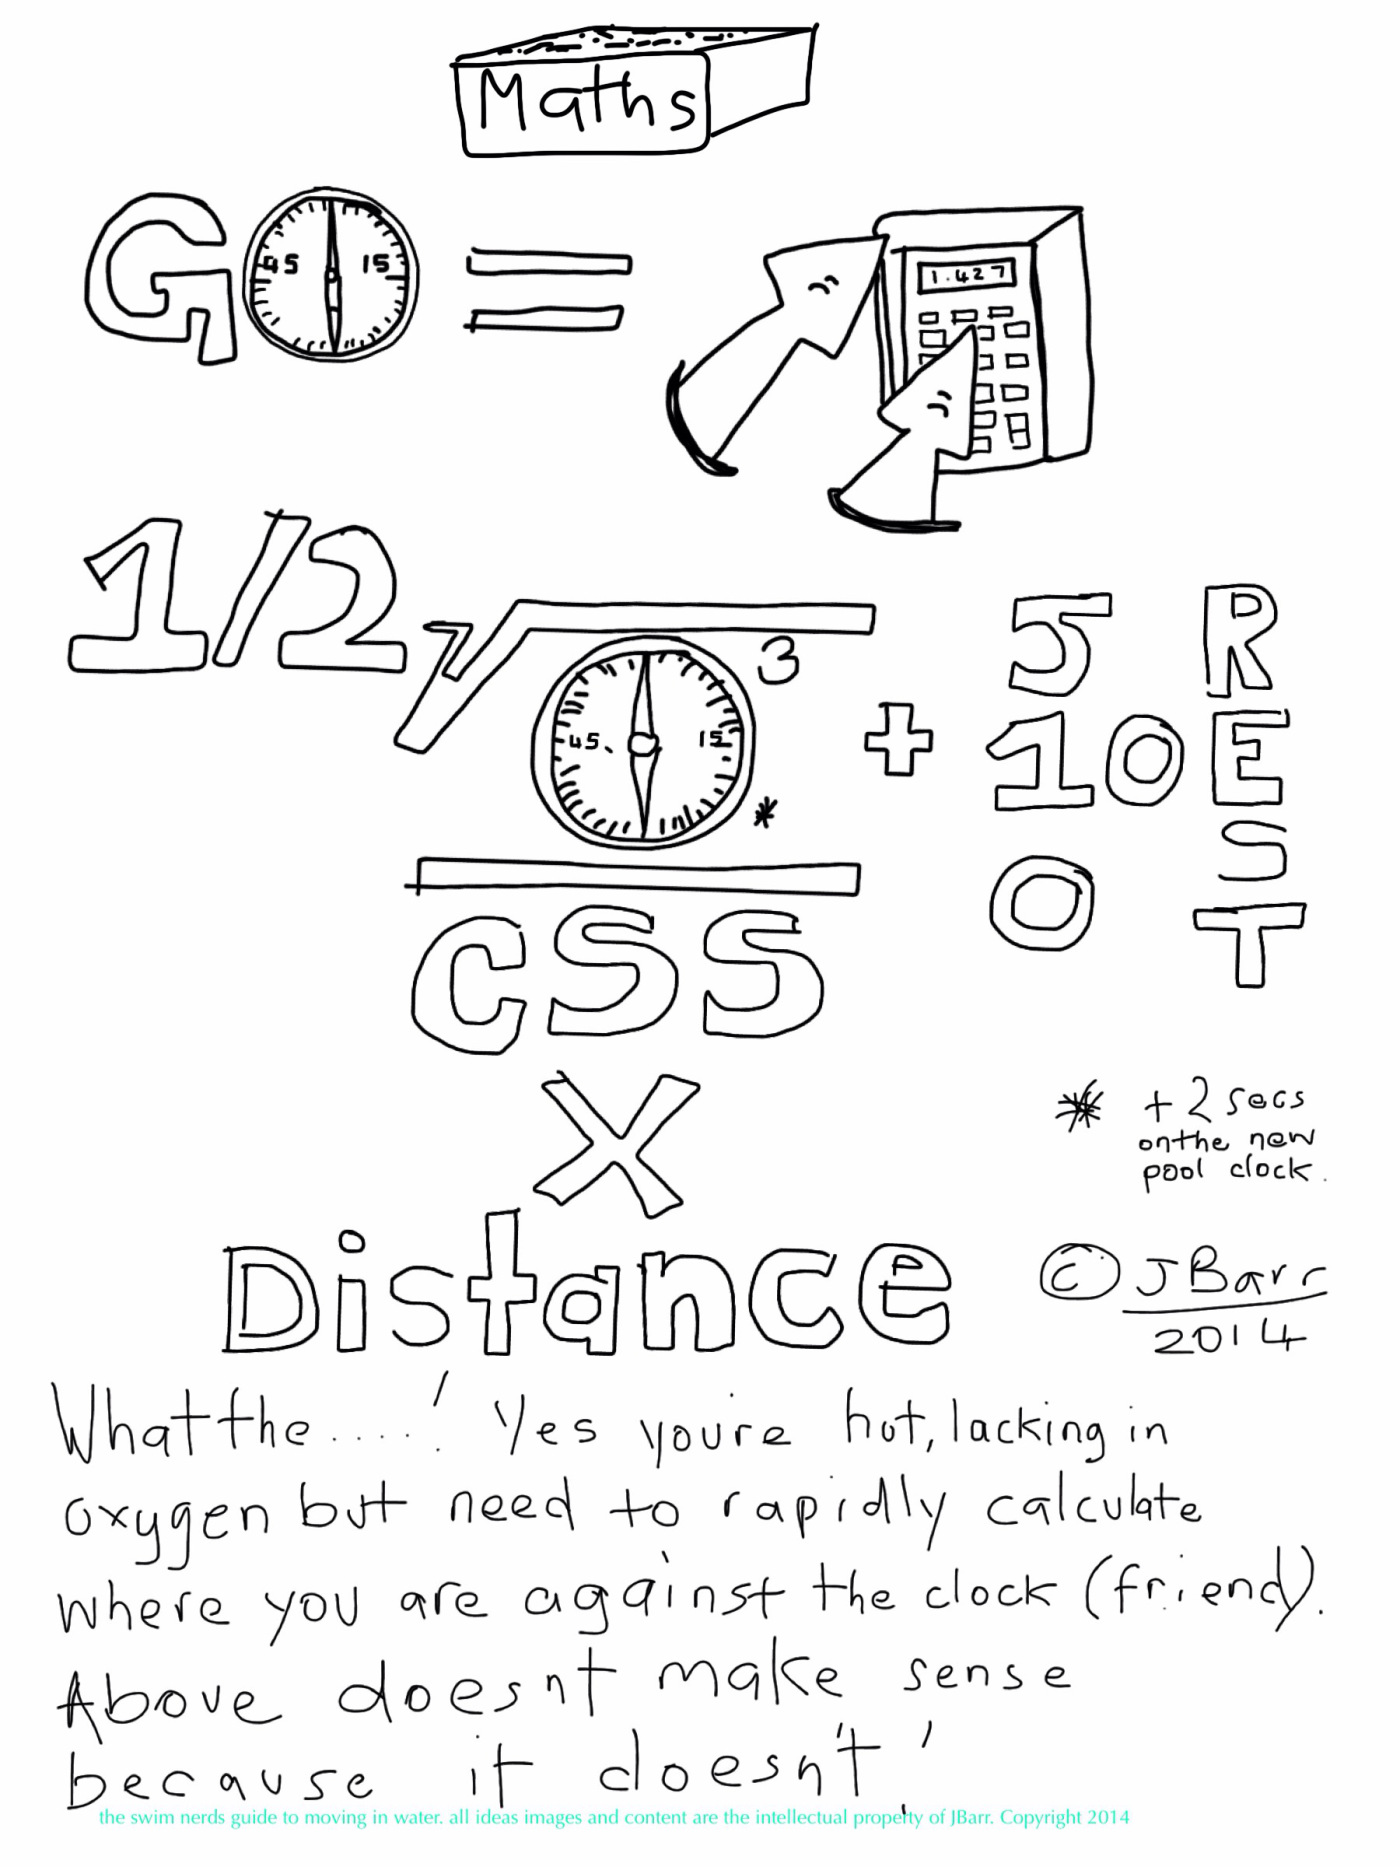 Maths
G 45 15 =
1.427
1/2 √ 3 + 5 R
45. 15 10 E
* 0 S
CSS T
X
* + 2 secs
on the new
pool clock.
Distance © JBarr
2014
What the ....! Yes youre hot, lacking in
oxygen but need to rapidly calculate
where you are against the clock (friend).
Above doesnt make sense
because it doesn't!
the swim nerds guide to moving in water. all ideas images and content are the intellectual property of JBarr. Copyright 2014